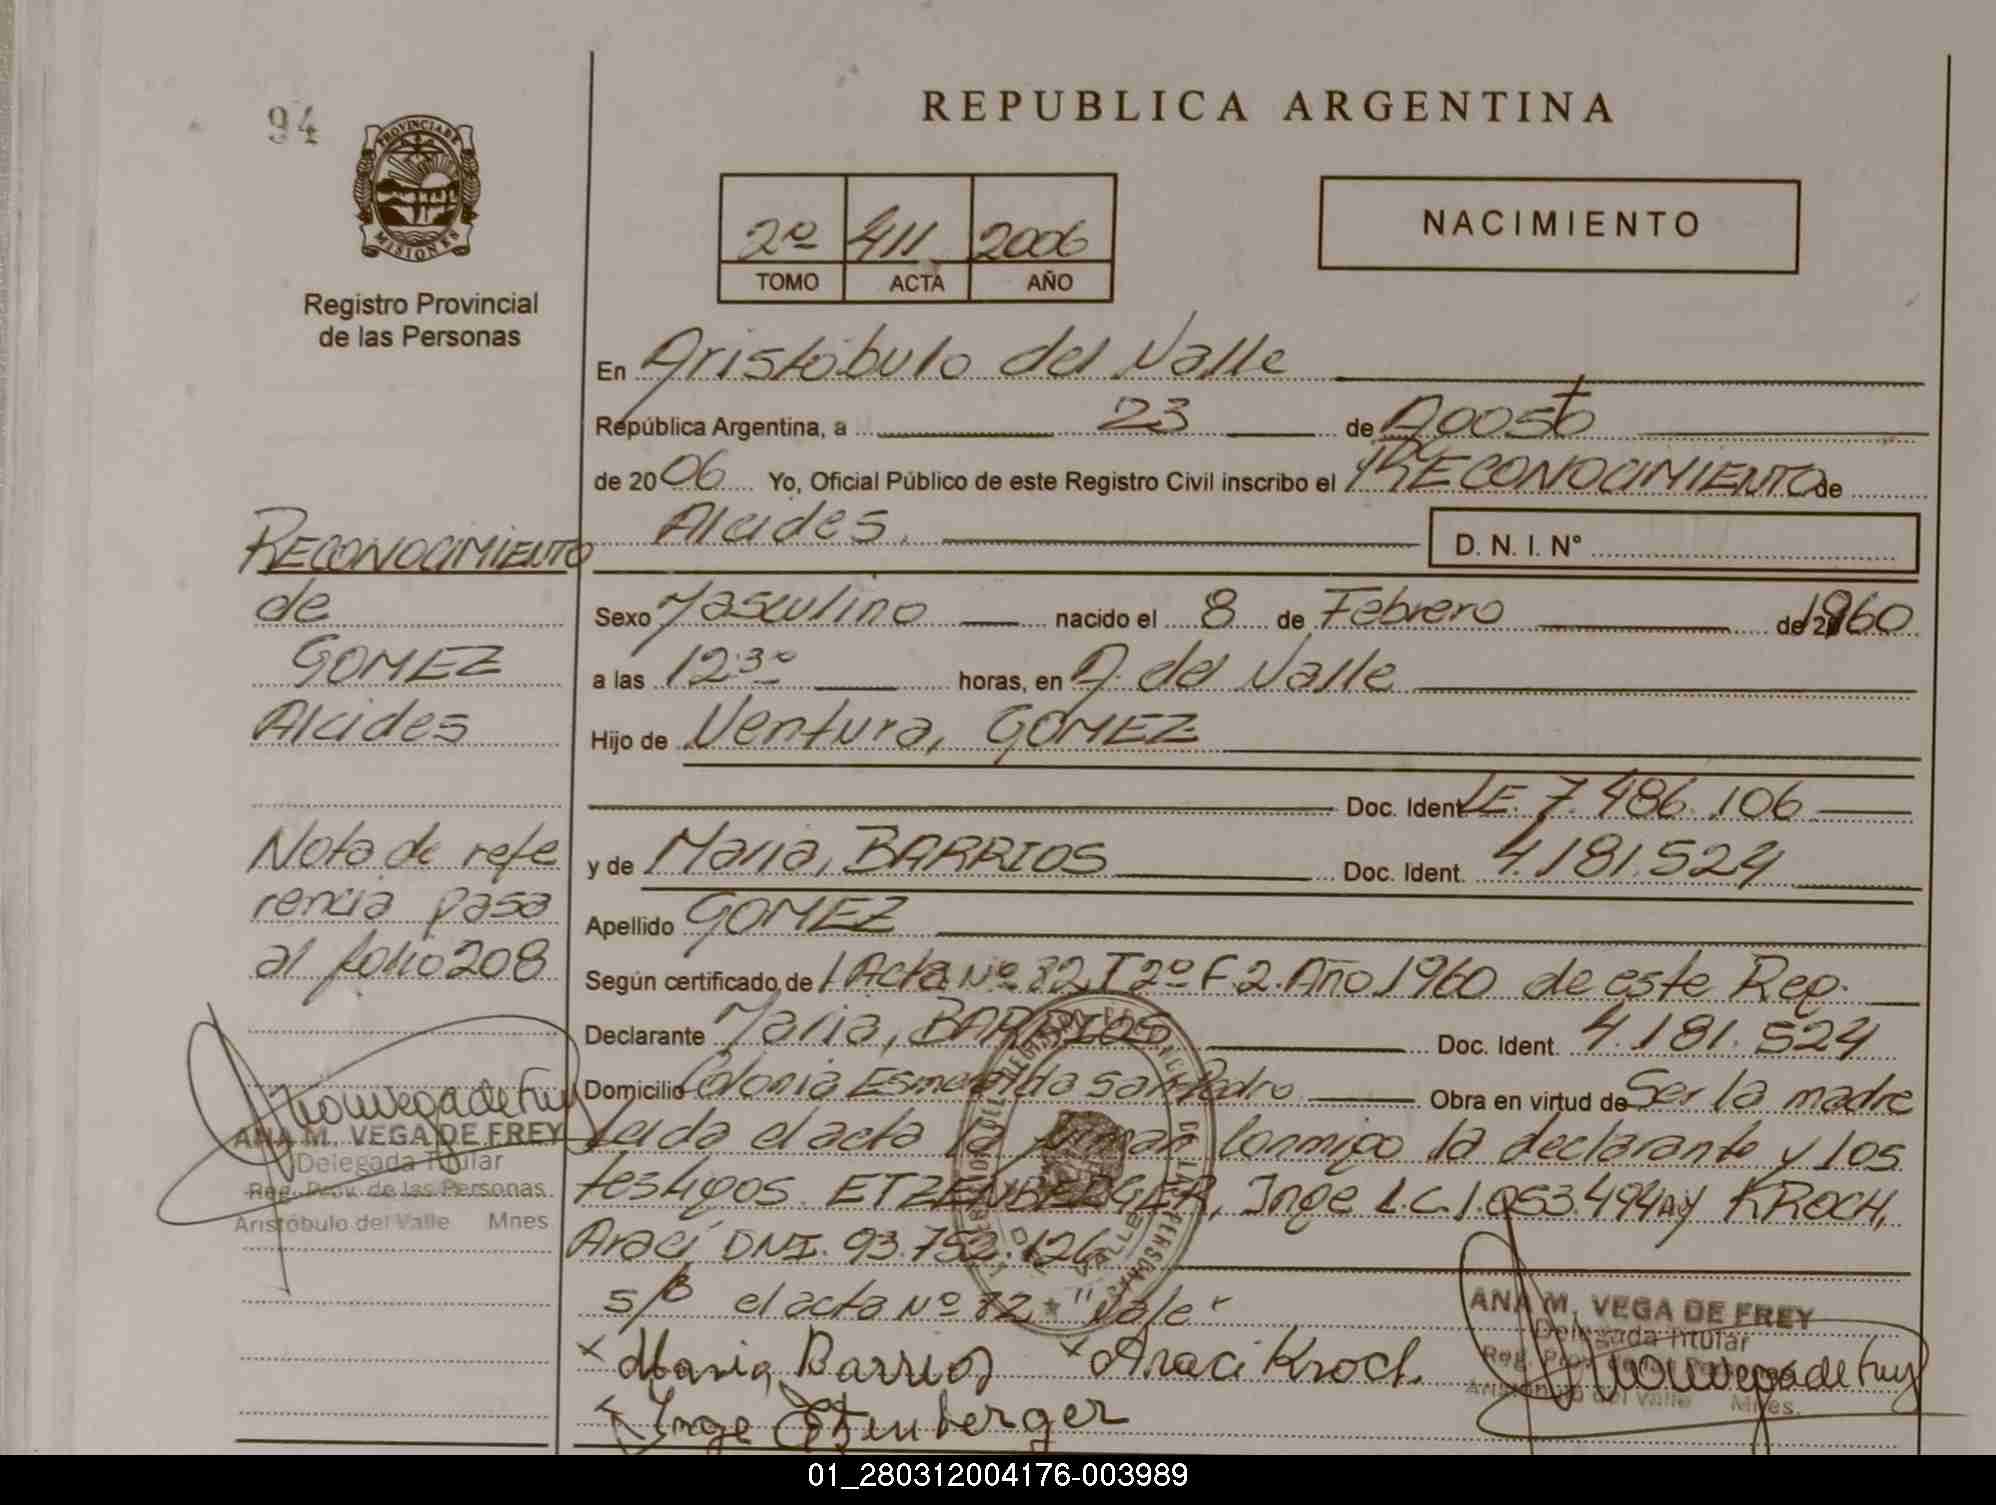 94
PROVINCIA DE
MISIONES
Registro Provincial
de las Personas
RECONOCIMIENTO
de
GOMEZ
Alcides
Nota de refe
rencia pasa
al folio 208
ANA M. VEGA DE FREY
Delegada Titular
Reg. Prov. de las Personas
Aristóbulo del Valle Mnes
REPUBLICA ARGENTINA
2º 411 2006
TOMO ACTA AÑO
NACIMIENTO
En Aristóbulo del Valle
República Argentina, a 23 de Agosto
de 2006 Yo, Oficial Público de este Registro Civil inscribo el RECONOCIMIENTO de
Alcides. D. N. I. Nº
Sexo Masculino nacido el 8 de Febrero de 1960
a las 12 30 horas, en A. del Valle
Hijo de Ventura, GOMEZ
Doc. Ident. LE. 7.486.106
y de Maria, BARRIOS Doc. Ident. 4.181.524
Apellido GOMEZ
Según certificado de Acta Nº 82 T 2º F.2. Año 1960 de este Reg.
Declarante Maria, BARRIOS Doc. Ident. 4.181.524
Domicilio Colonia Esmeralda San Pedro Obra en virtud de Ser la madre
Leida el acta la firman conmigo la declarante y los
testigos. ETZENBERGER, Inge L.C. 1.053.494 y KROCH,
Araci DNI. 93.752.126
s/B el acta Nº 82 Vale
x Maria Barrios x Araci Kroch.
x Inge Etzenberger
ANA M. VEGA DE FREY
Delegada Titular
Reg. Prov. de las Personas
Aristóbulo del Valle Mnes.
01_280312004176-003989